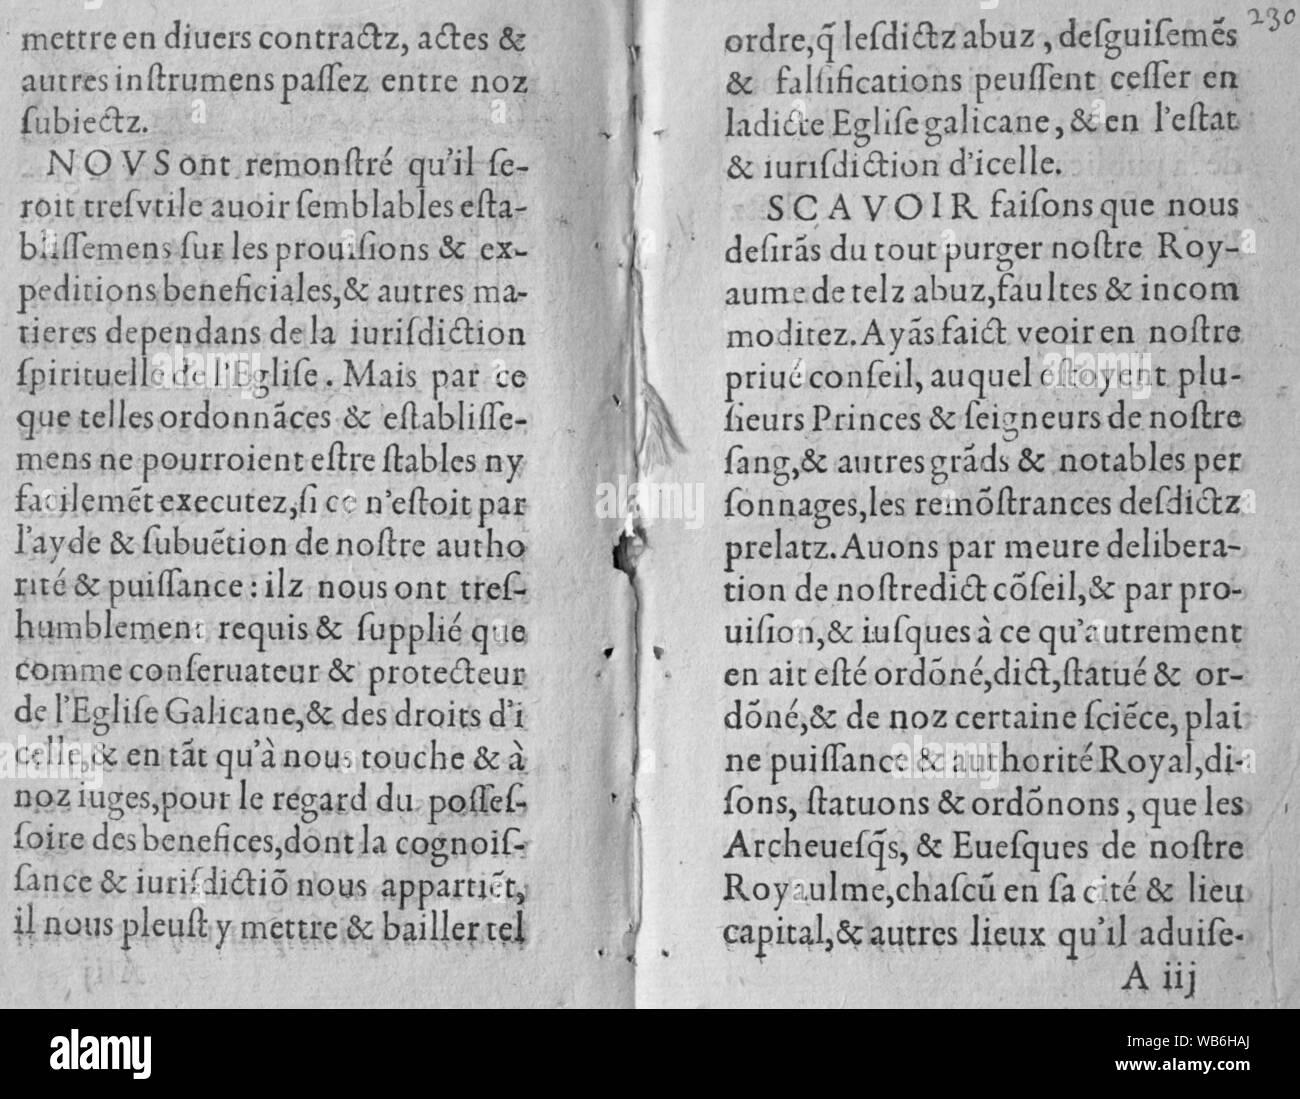 mettre en diuers contractz, actes &
autres inſtrumens paſſez entre noz
ſubiectz.
NOVS ont remonſtré qu'il ſe-
roit treſvtile auoir ſemblables eſta-
bliſſemens ſur les prouiſions & ex-
peditions beneficiales,& autres ma-
tieres dependans de la iuriſdiction
ſpirituelle de l'Egliſe. Mais par ce
que telles ordonnāces & eſtabliſſe-
mens ne pourroient eſtre ſtables ny
facilemēt executez,ſi ce n'eſtoit par
l'ayde & ſubuētion de noſtre autho
rité & puiſſance : ilz nous ont treſ-
humblement requis & ſupplié que
comme conſeruateur & protecteur
de l'Egliſe Galicane,& des droits d'i
celle,& en tāt qu'à nous touche & à
noz iuges,pour le regard du poſſeſ-
ſoire des benefices,dont la cognoiſ-
ſance & iuriſdictiō nous appartiēt,
il nous pleuſt y mettre & bailler tel
230
ordre,q̃ leſdictz abuz , deſguiſemēs
& falſifications peuſſent ceſſer en
ladicte Egliſe galicane, & en l'eſtat
& iuriſdiction d'icelle.
SCAVOIR faiſons que nous
deſirās du tout purger noſtre Roy-
aume de telz abuz,faultes & incom
moditez. Ayās faict veoir en noſtre
priué conſeil, auquel eſtoyent plu-
ſieurs Princes & ſeigneurs de noſtre
ſang,& autres grāds & notables per
ſonnages,les remōſtrances deſdictz
prelatz. Auons par meure delibera-
tion de noſtredict cōſeil,& par pro-
uiſion,& iuſques à ce qu'autrement
en ait eſté ordōné,dict,ſtatué & or-
dōné,& de noz certaine ſciēce, plai
ne puiſſance & authorité Royal,di-
ſons, ſtatuons & ordōnons , que les
Archeueſq̃s, & Eueſques de noſtre
Royaulme,chaſcū en ſa cité & lieu
capital,& autres lieux qu'il aduiſe-
A iij
alamy
alamy
Image ID: WB6HAJ
www.alamy.com